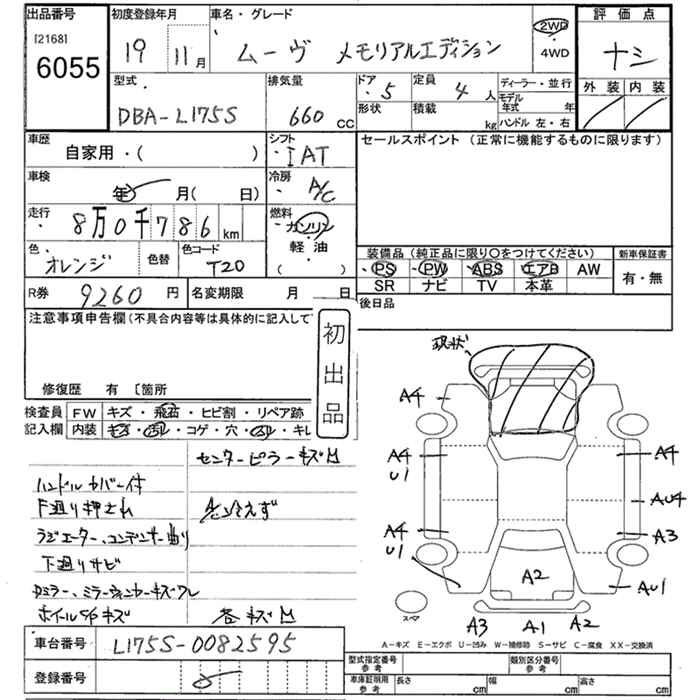 出品番号 初度登録年月 車名・グレード 評価点
[2168] 6055
19 11月 ムーヴ メモリアルエディション 2WD 4WD ナシ
外装 内装
型式 排気量 ドア 定員 ディーラー・並行
DBA-L175S 660 CC 5 4人
形状 積載 kg モデル年式 年
ハンドル 左・右
車歴 シフト セールスポイント(正常に機能するものに限ります)
自家用・( ) IAT
車検 年 月( 日) 冷房 A/C
走行 8万0千786km 燃料 ガソリン 軽油 ( )
色 オレンジ 色替 色コード T20
装備品(純正品に限り○をつけてください) 新車保証書
PS PW ABS エアB AW 有・無
SR ナビ TV 本革
R券 9260円 名変期限 月 日 後日品
注意事項申告欄(不具合内容等は具体的に記入して
初出品
修復歴 有 〔箇所
検査員 FW キズ・飛石・ヒビ割・リペア跡
記入欄 内装 キズ・汚レ・コゲ・穴・スレ・キレ
センターピラーキズM
ハンドルカバー付
下廻り押され A/C冷えず
ラジエーター、コンデンサー曲り
下廻りサビ
Dミラー、ミラーウィンカーキズワレ
ホイルCapキズ 各キズM
現状
A4
A4 U1 A4
AU4
A4 U1 A3
A2 AU1
スペア
A3 A1 A2
A-キズ E-エクボ U-凹み W-補修跡 S-サビ C-腐食 XX-交換済
車台番号 L175S-0082595
登録番号
型式指定番号 参考 類別区分番号 参考
車庫証明用 参考 長さ cm 幅 cm 高さ cm